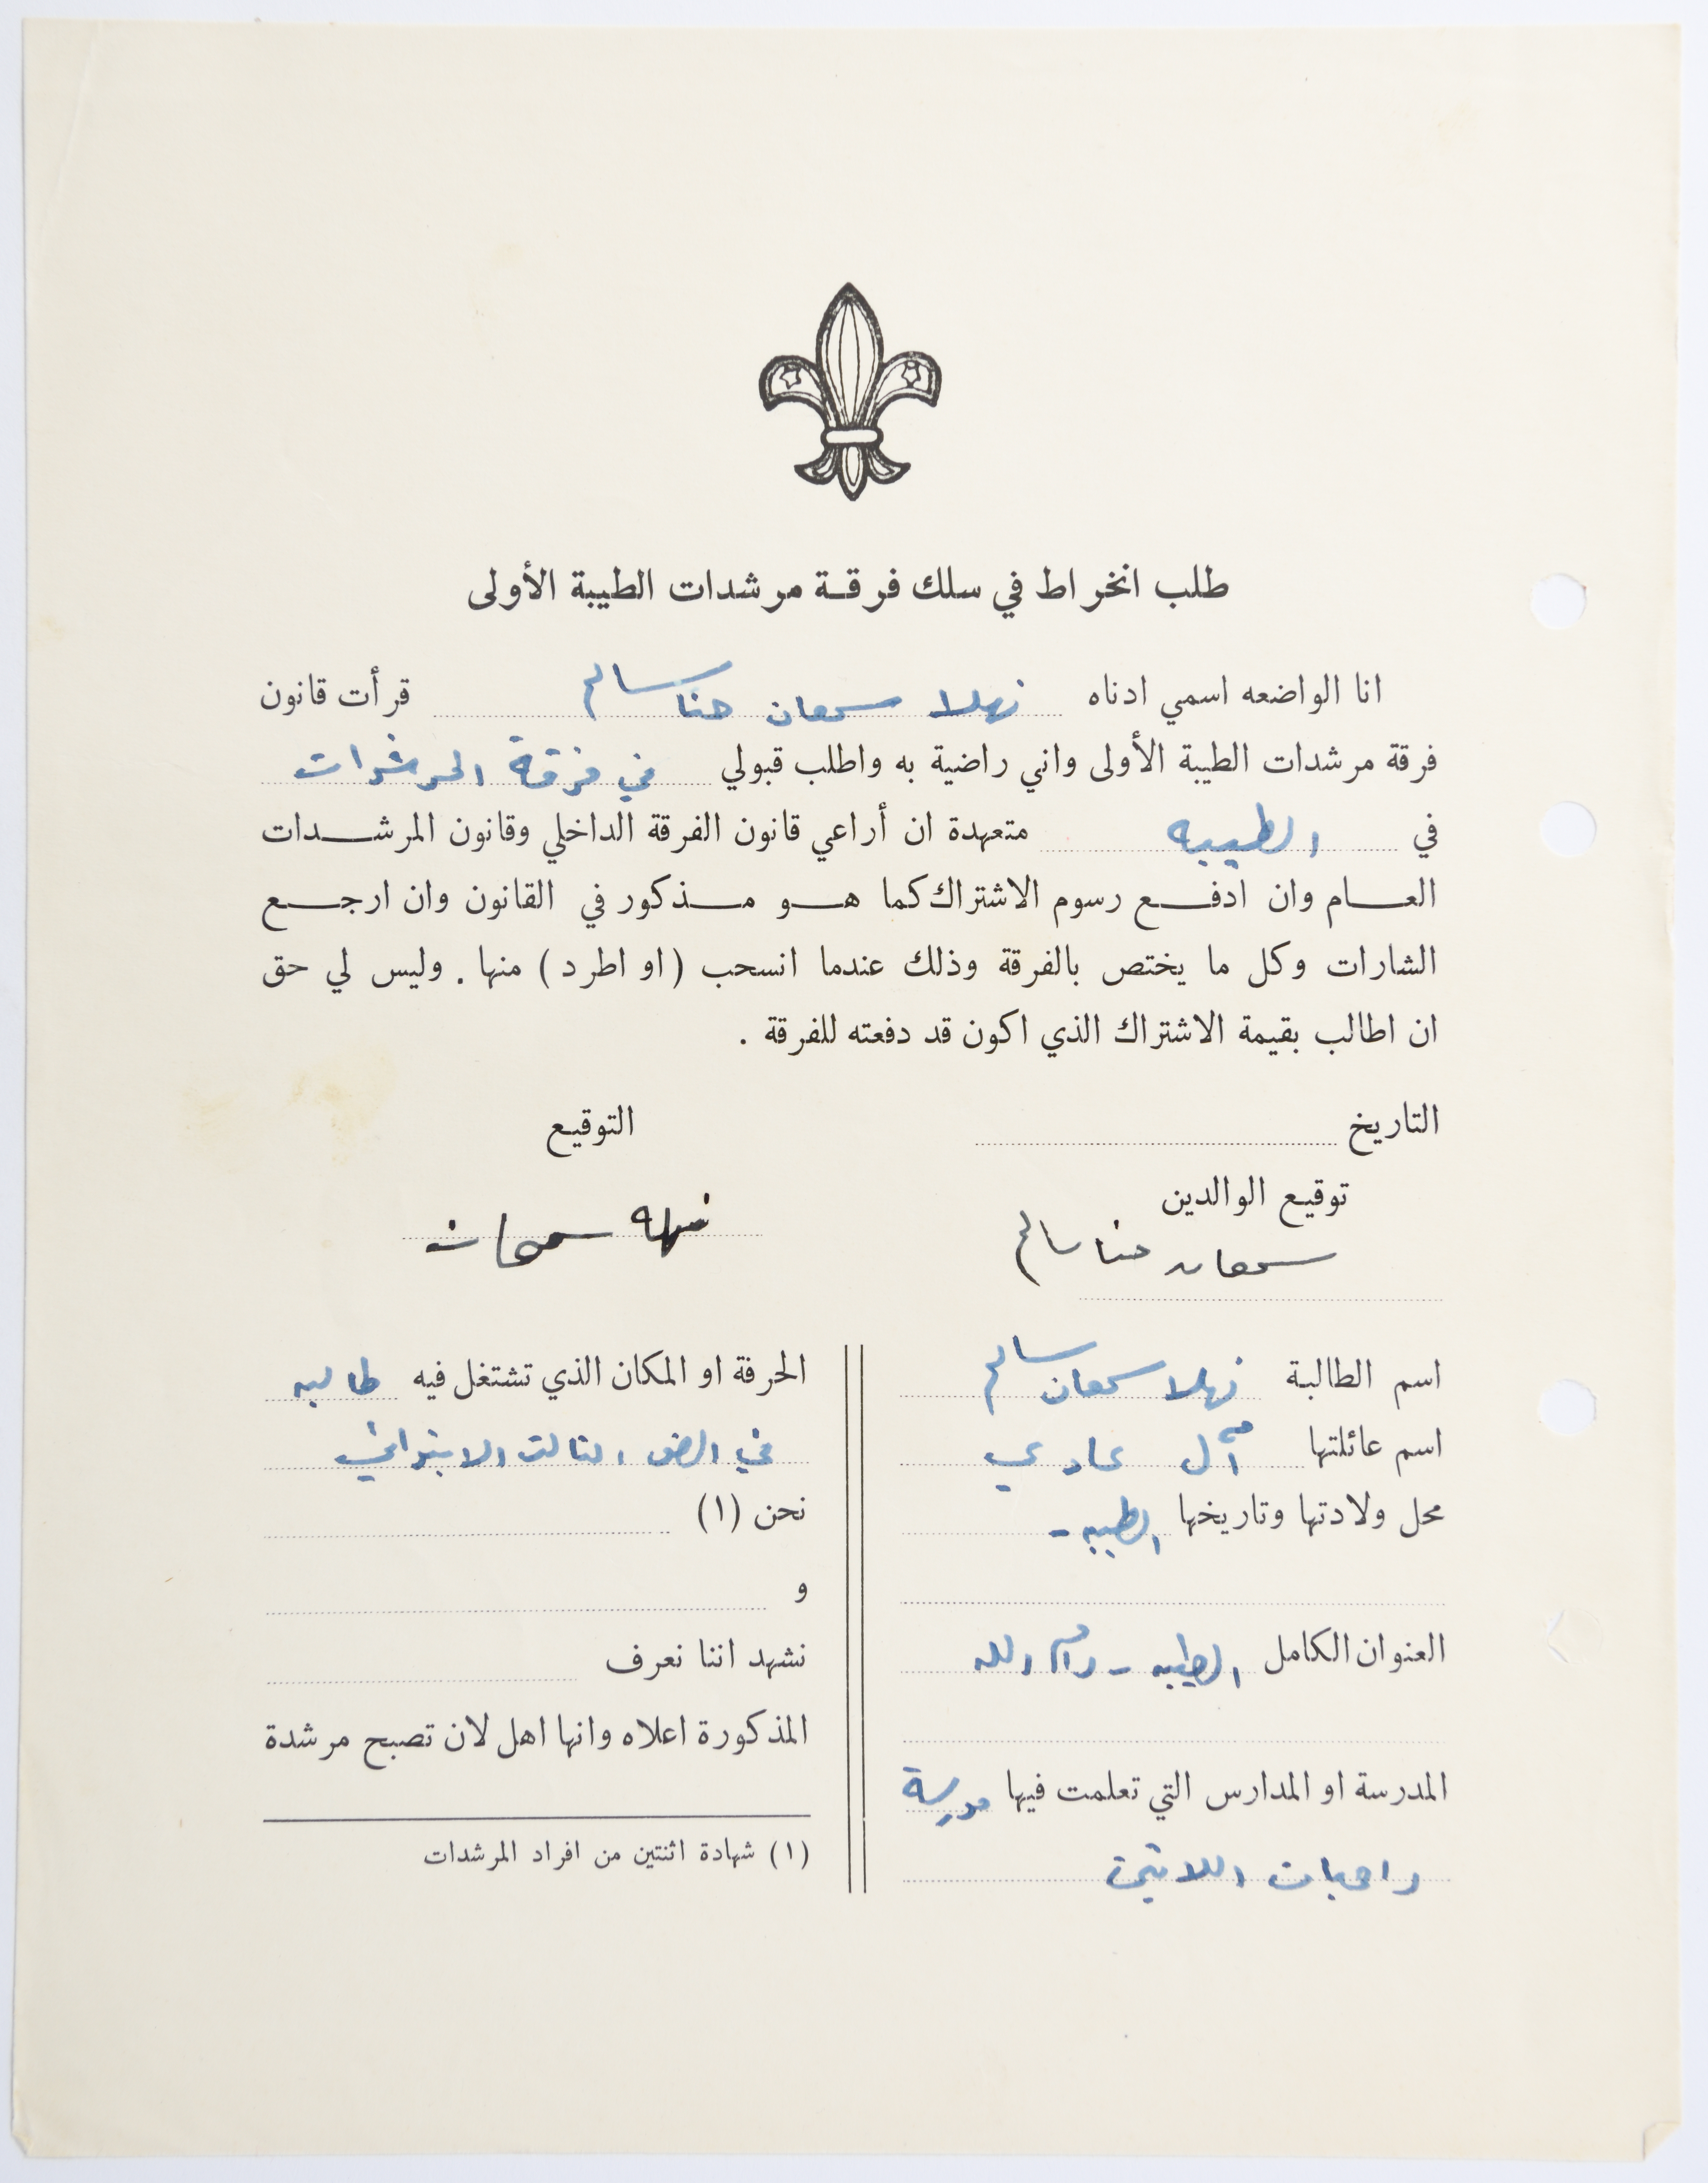 طلب انخراط في سلك فرقة مرشدات الطيبة الأولى
انا الواضعه اسمي ادناه نهلا سمعان حنا سالم قرأت قانون
فرقة مرشدات الطيبة الأولى واني راضية به واطلب قبولي في فرقة المرشدات
في الطيبه متعهدة ان أراعي قانون الفرقة الداخلي وقانون المرشدات
العام وان ادفع رسوم الاشتراك كما هو مذكور في القانون وان ارجع
الشارات وكل ما يختص بالفرقة وذلك عندما انسحب (او اطرد) منها . وليس لي حق
ان اطالب بقيمة الاشتراك الذي اكون قد دفعته للفرقة .
التاريخ
التوقيع
توقيع الوالدين
سمعان حنا سالم
نهله سمعان
اسم الطالبة نهلا سمعان سالم
اسم عائلتها آل
محل ولادتها وتاريخها الطيبه -
العنوان الكامل الطيبه - رام الله
المدرسة او المدارس التي تعلمت فيها مدرسة
راهبات اللاتين
الحرفة او المكان الذي تشتغل فيه طالبه
في الصف الثالث الابتدائي
نحن (١)
و
نشهد اننا نعرف
المذكورة اعلاه وانها اهل لان تصبح مرشدة
(١) شهادة اثنتين من افراد المرشدات